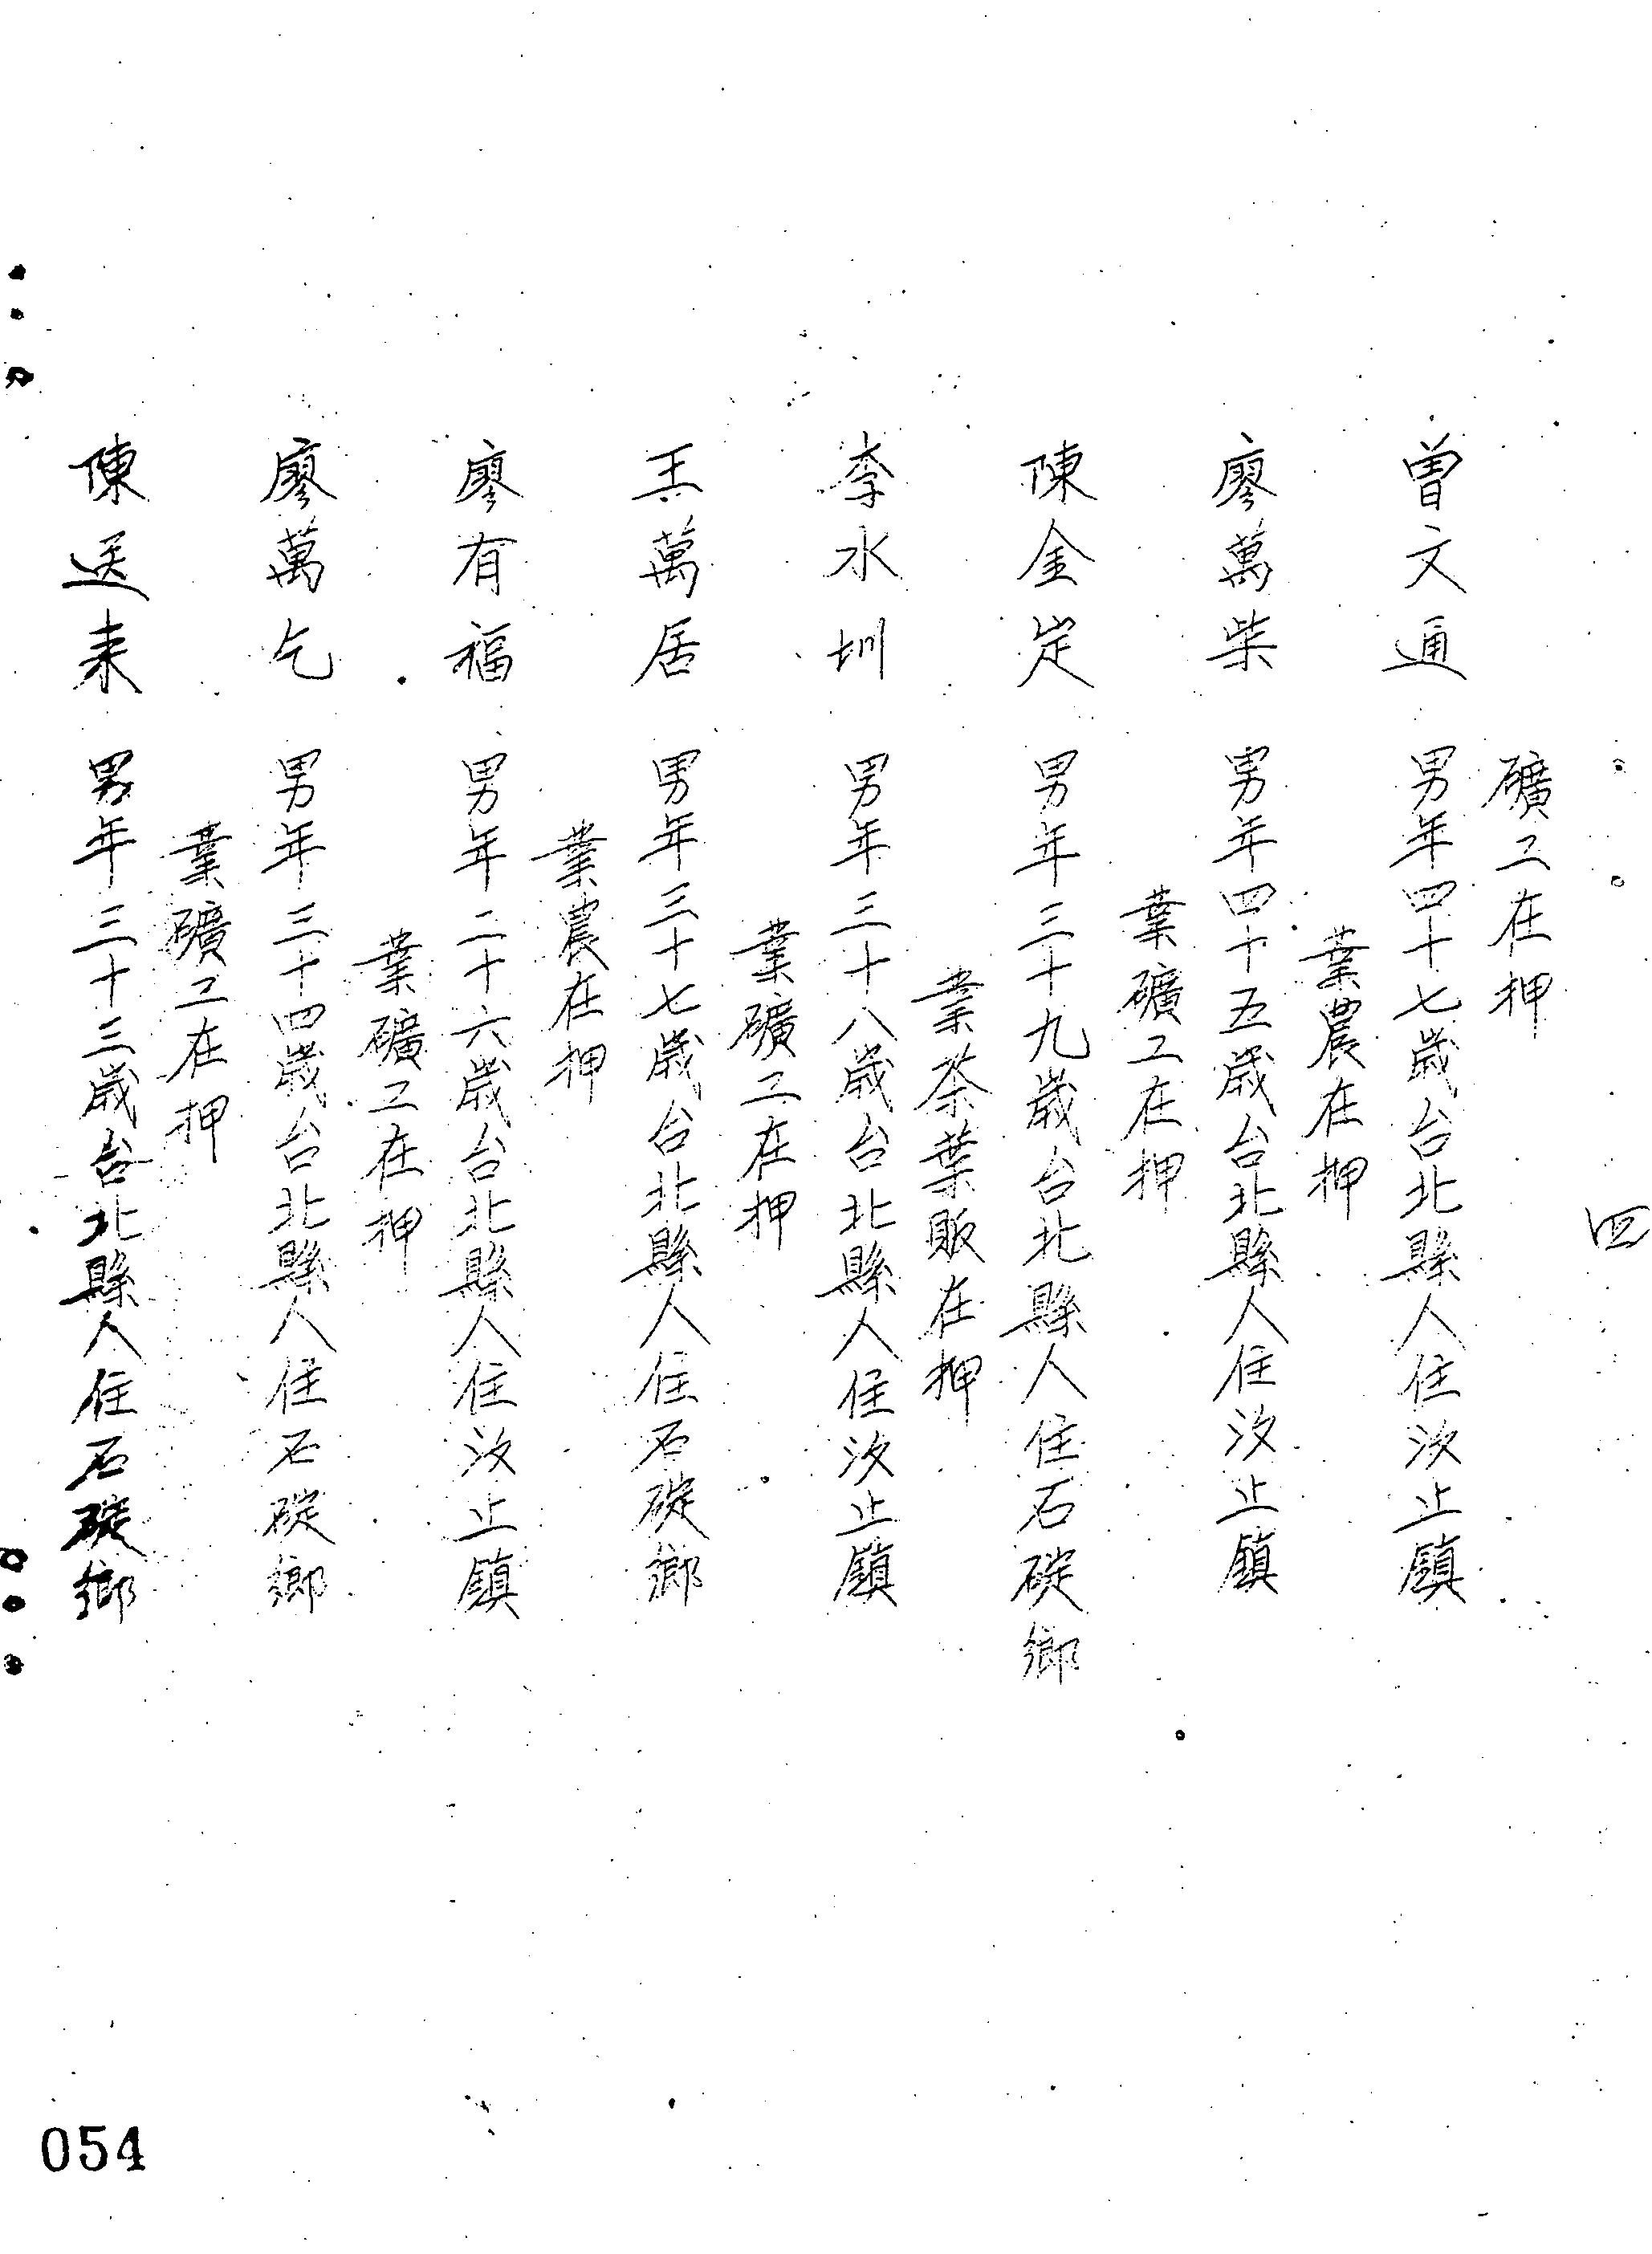 四
礦工在押
曾文通　男年四十七歲台北縣人住汐止鎮
業農在押
廖萬柴　男年四十五歲台北縣人住汐止鎮
業礦工在押
陳金定　男年三十九歲台北縣人住石碇鄉
業茶葉販在押
李水圳　男年三十八歲台北縣人住汐止鎮
業礦工在押
王萬居　男年三十七歲台北縣人住石碇鄉
業農在押
廖有福　男年二十六歲台北縣人住汐止鎮
業礦工在押
廖萬乞　男年三十四歲台北縣人住石碇鄉
業礦工在押
陳送來　男年三十三歲台北縣人住石碇鄉
054